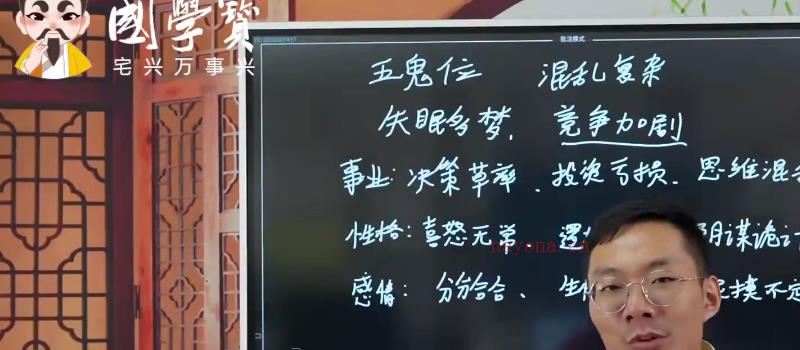 國學寶
宅兴万事兴
批注模式
五鬼位 混乱复杂
失眠多梦, 竞争加剧
事业: 决策草率、投资亏损、思维混
性格: 喜怒无常、 阴谋诡计
感情: 分分合合、 摸不定
nayona.cn